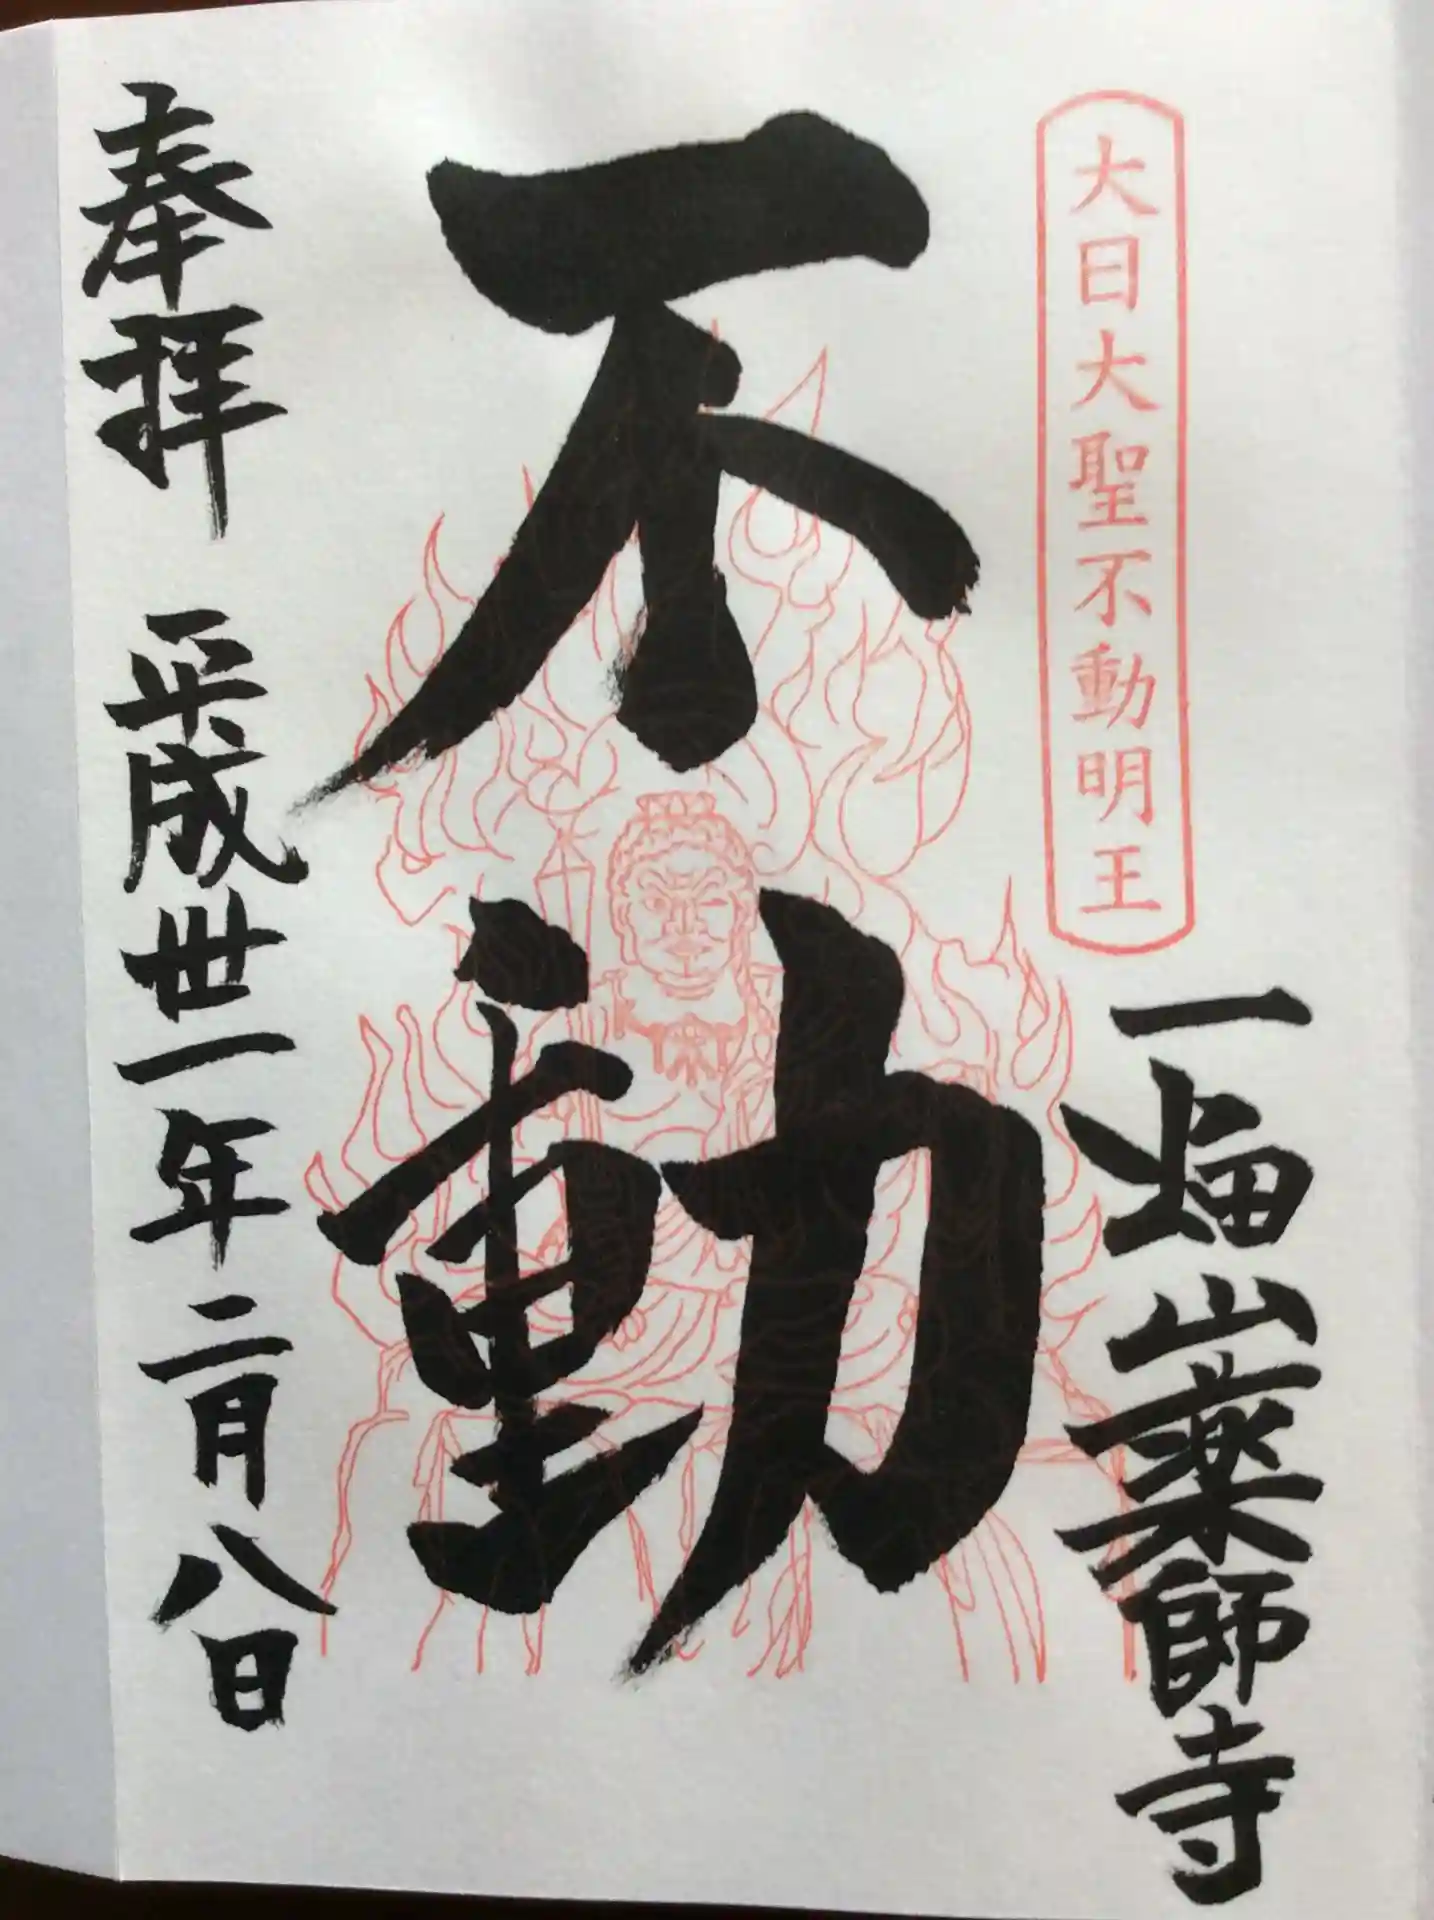 大日大聖不動明王
一畑山薬師寺
不動
奉拝 平成丗一年二月八日